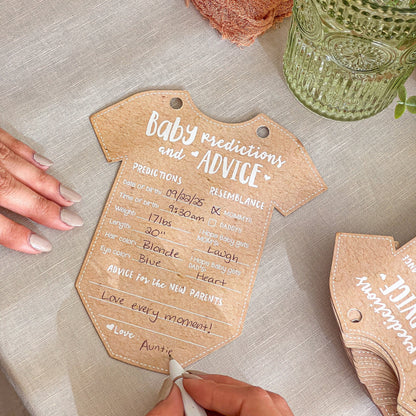 Baby predictions
and ADVICE
PREDICTIONS RESEMBLANCE
Date of birth: 09/23/25 MUMMY?
Time of birth: 9:30am DADDY?
Weight: 17lbs I hope Baby gets MUMMY'S
Length: 20" Laugh
Hair color: Blonde I hope Baby gets DADDY'S
Eye color: Blue Heart
ADVICE for the NEW PARENTS
Love every moment!
Love: Auntie
Predictions
ADVICE